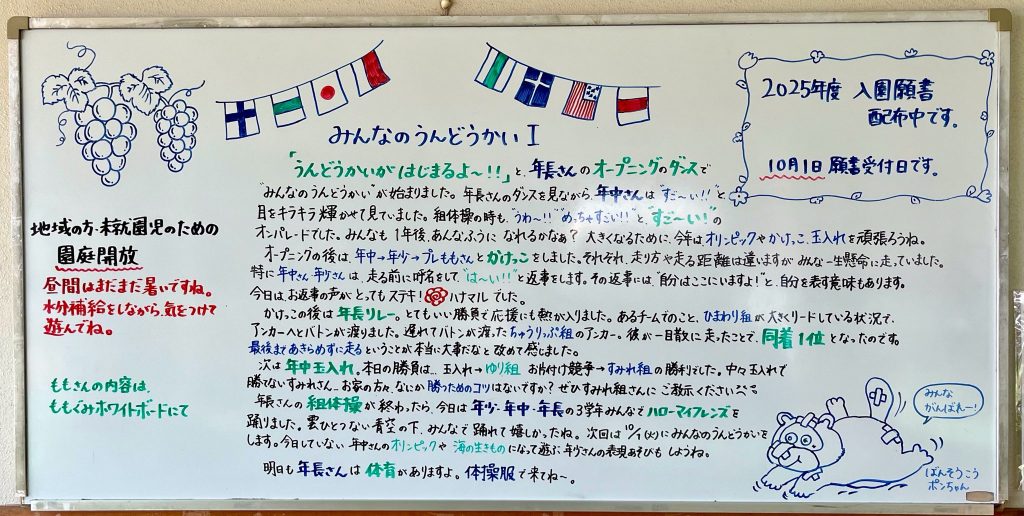 みんなのうんどうかい I
「うんどうかいが はじまるよ〜!!」と、年長さんのオープニングのダンスで
"みんなのうんどうかい"が始まりました。年長さんのダンスを見ながら、年中さんは"すご〜い!!"と、
目をキラキラ輝かせて見ていました。組体操の時も、"うわ〜!!""めっちゃすごい!!"と、"すご〜い!"の
オンパレードでした。みんなも1年後、あんなふうに なれるかなぁ? 大きくなるために、今年はオリンピックやかけっこ、玉入れを頑張ろうね。
オープニングの後は、年中→年少→プレももさんと かけっこをしました。それぞれ、走り方や走る距離は違いますが みんな一生懸命に走っていました。
特に年中さん、年少さんは、走る前に呼名をして、"は〜い!!"と返事をします。その返事には、"自分はここにいますよ!"と、自分を表す意味もあります。
今日は、お返事の声が、とってもステキ! ハナマルでした。
かけっこの後は 年長リレー。とてもいい勝負で応援にも熱が入りました。あるチームでのこと、ひまわり組が大きくリードしている状況で、
アンカーへとバトンが渡りました。遅れてバトンが渡った ちゅうりっぷ組のアンカー。彼が一目散に走ったことで、同着1位となったのです。
最後まであきらめずに走るということが本当に大事だなと 改めて感じました。
次は 年中玉入れ。本日の勝負は… 玉入れ→ゆり組 お片付け競争→すみれ組の勝利でした。中々玉入れで
勝てないすみれさん… お家の方々、なにか勝つためのコツはないですか? ぜひすみれ組さんに ご教示ください
年長さんの 組体操が 終わったら、今日は年少・年中・年長の3学年みんなでハローマイフレンズを
踊りました。雲ひとつない青空の下、みんなで踊れて嬉しかったね。次回は10/1(火)にみんなのうんどうかいを
します。今日していない 年中さんのオリンピックや 海の生きものになって遊ぶ、年少さんの表現あそびもしようね。
明日も年長さんは 体育がありますよ。体操服で来てね〜。
地域の方・未就園児のための
園庭開放
昼間はまだまだ暑いですね。
水分補給をしながら、気をつけて
遊んでね。
ももさんの内容は、
ももぐみホワイトボードにて
2025年度 入園願書
配布中です。
10月1日 願書受付日です。
みんな
がんばれー!
ばんそうこう
ポンちゃん